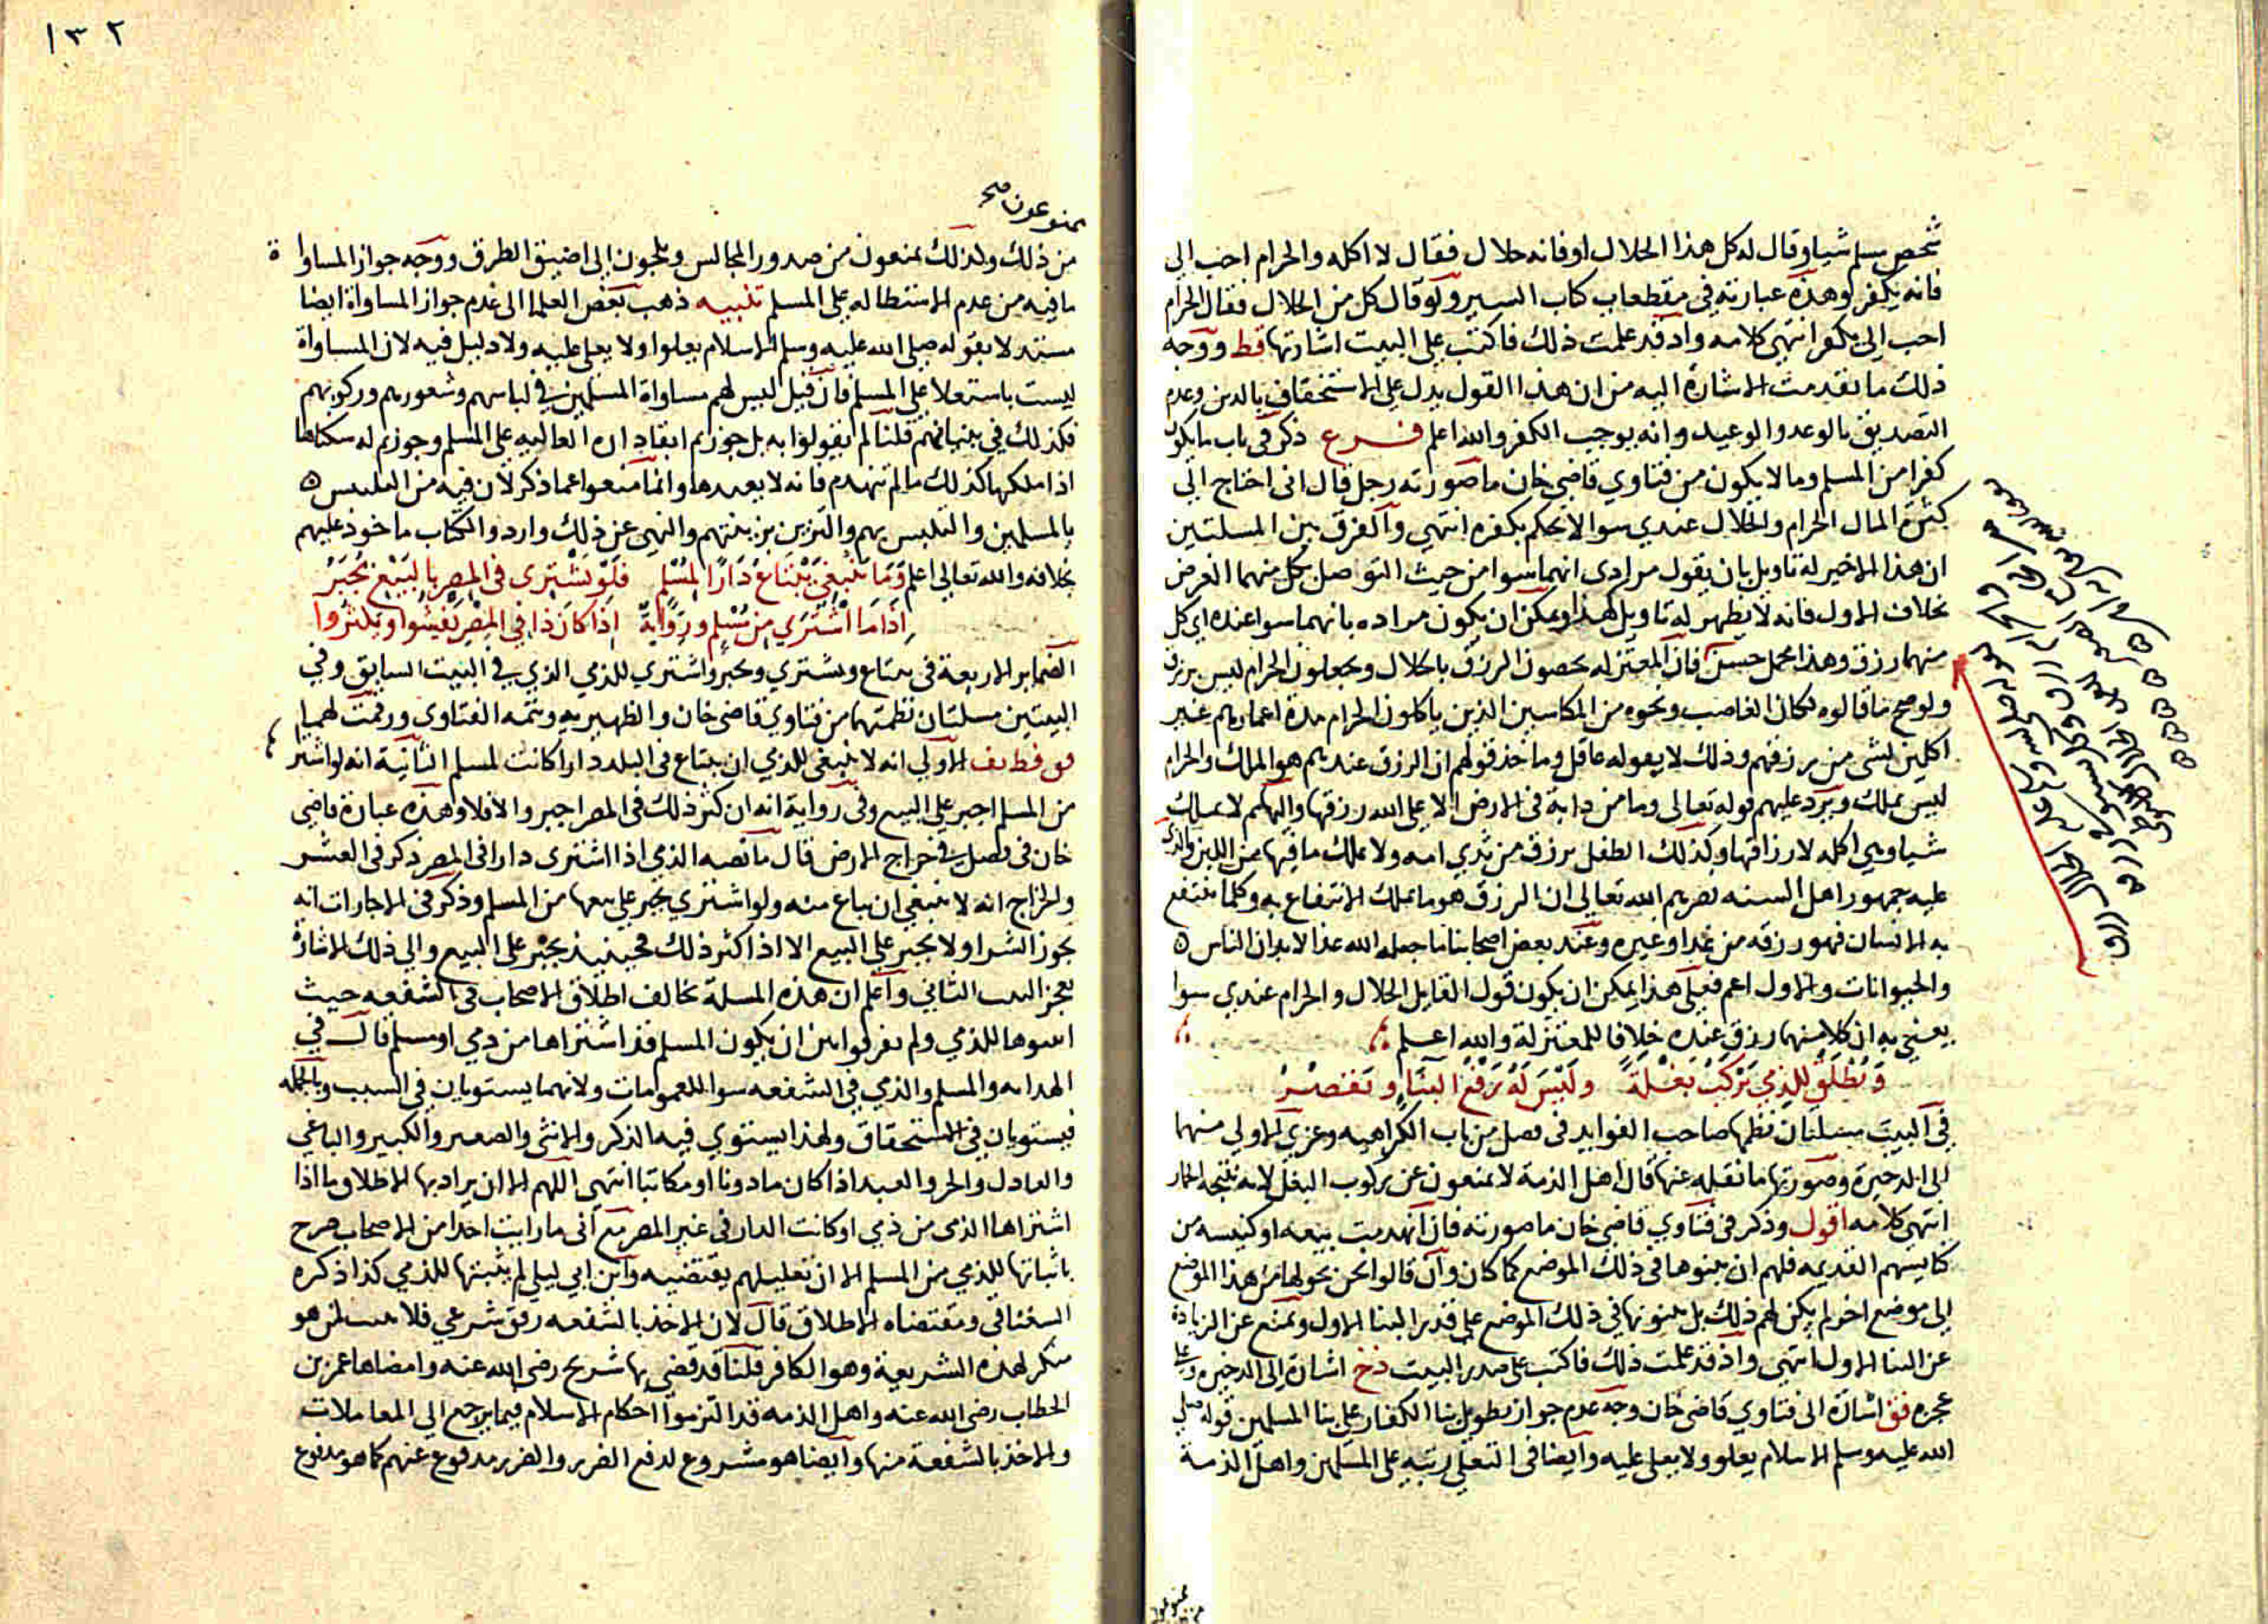 شخص مسلم شيا وقال له كل هذا الحلال او فانه حلال فقال لا اكله والحرام احب الي
فانه يكفر وهذه عبارته في مقطعاب كتاب السير ولو قال كل من الحلال فقال الحرام
احب الي يكفر انتهى كلامه واذ قد علمت ذلك فاكتب على البيت اشارتها قط ووجه
ذلك ما تقدمت الاشارة اليه من ان هذا القول يدل على الاستخفاف بالدين وعدم
التصديق بالوعد والوعيد وانه يوجب الكفر والله اعلم فرع ذكر في باب ما يكون
كفرا من المسلم وما لا يكون من فتاوي قاضي خان ما صورته رجل قال انى احتاج الى
كثرة المال الحرام والحلال عندي سوا لا يحكم بكفره انتهي والفرق بين المسلتين
ان هذا الاخير له تاويل بان يقول مرادى انهما سوا من حيث التوصل بكل منهما الغرض
بخلاف الاول فانه لا يظهر له تاويل كهذا ويمكن ان يكون مراده بانهما سوا عنده اي كل
منهما رزق وهذا محمل حسن فان المعتزله يخصون الرزق بالحلال ويجعلون الحرام ليس برزق
ولو صح ما قالوه لكان الغاصب ونحوه من المكاسين الذين ياكلون الحرام مدة اعمارهم غير
اكلين لشي من رزقهم وذلك لا يقوله عاقل وماخذ قولهم ان الرزق عندهم هو الملك والحرام
ليس بملك ويرد عليهم قوله تعالى وما من دابة في الارض الا على الله رزقها والبهائم لا تملك
شيا وهي اكله لارزاقها وكذلك الطفل يرزق من ثدي امه ولا يملك ما فيها من اللبن والذي
عليه جمهور اهل السنه نصرهم الله تعالى ان الرزق هو ما يملك الانتفاع به وكلما ينتفع
به الانسان فهو رزقه من غدا وغيره وعند بعض اصحابنا ما جعله الله غذا لابدان الناس
والحيوانات والاول اعم فعلى هذا يمكن ان يكون قول القايل الحلال والحرام عندي سوا
يعني به ان كلا منهما رزق عنده خلافا للمعتزلة والله اعلم
ويُطلق للذمي يركب بغلة وليس له رفع البناء ويقصر
في البيت مسلتان نظمها صاحب الفوايد في فصل من باب الكراهيه وعزي الاولي منهما
الى الذخيرة وصورتها ما نقله عنها قال اهل الذمة لا يمنعون عن ركوب البغل لانه نتيجه الحمار
انتهى كلامه اقول وذكر في فتاوي قاضي خان ما صورته فان انهدمت بيعه او كنيسه من
كنايسهم القديمه فلهم ان يبنوها في ذلك الموضع كما كان وان قالوا نحن نحولها من هذا الموضع
الى موضع اخر لم يكن لهم ذلك بل يبنونها في ذلك الموضع على قدر البنا الاول ويمنع عن الزيادة
عن البنا الاول انتهي واذ قد علمت ذلك فاكتب على صدر البيت ذخ اشارة الى الذخيره وعلى
عجزه فق اشارة الى فتاوي قاضي خان وجه عدم جواز تطويل بنا الكفار على بنا المسلمين قوله صلى
الله عليه وسلم الاسلام يعلو ولا يعلى عليه وايضا في التعلي رتبه على المسلمين واهل الذمة
١٣٢
يمنوعون صح
من ذلك ولذلك يمنعون من صدور المجالس ويلجون الى اضيق الطرق ووجه جواز المساواة
ما فيه من عدم الاستطاله على المسلم تنبيه ذهب بعض العلما الى عدم جواز المساواة ايضا
مستدلا بقوله صلى الله عليه وسلم الاسلام يعلوا ولا يعلى عليه ولا دليل فيه لان المساواة
ليست باستعلا على المسلم فان قيل ليس لهم مساواة المسلمين في لباسهم وشعورهم وركوبهم
فكذلك في بنيانهم قلنا لم يقولوا به بل جوزتم ابقا داره العاليه على المسلم وجوزتم له سكناها
اذا ملكها كذلك ما لم تنهدم فانه لا يعيدها وانما منعوا عما ذكر لان فيه من التلبس
بالمسلمين والتلبس بهم والتزين بزينتهم والنهى عن ذلك وارد والكتاب ماخوذ عليهم
بخلافه والله تعالى اعلم وما ينبغي يبتاع دارا لمسلم فلو يشترى في المصر بالبيع يجبر
اذا ما اشتري من مسلم ورواية اذا كان ذا في المصر يفشوا ويكثروا
الضماير الاربعة في يبتاع ويشتري ويجبر واشتري للذمي الذي في البيت السابق وفي
البيتين مسلتان نظمتها من فتاوي قاضي خان والظهيريه وتتمه الفتاوى ورقمت لهما
فق فظ يف الاولي انه لا ينبغي للذمي ان يبتاع في البلد دارا كانت لمسلم الثانية انه لو اشتر
من المسلم اجبر على البيع وفي رواية انه ان كثر ذلك في المصر اجبر والا فلا وهذه عبارة قاضي
خان في فصل في خراج الارض قال ما نصه الذمي اذا اشترى دارا في المصر ذكر في العشر
والخراج انه لا ينبغي ان تباع منه ولو اشتري يجبر على بيعها من المسلم وذكر في الاجارات انه
يجوز الشرا ولا يجبر على البيع الا اذا كثر ذلك فحينيذ يجبر على البيع والي ذلك الاشارة
بعجز البيت الثاني واعلم ان هذه المسلة تخالف اطلاق الاصحاب في الشفعه حيث
اثبتوها للذمي ولم يفرقوا بين ان يكون المسلم قد اشتراها من ذمي او مسلم قال في
الهدايه والمسلم والذمي في الشفعه سوا للعمومات ولانهما يستويان في السبب والحكمه
فيستويان في الاستحقاق ولهذا يستوي فيه الذكر والانثى والصغير والكبير والباغي
والعادل والحر والعبد اذا كان ماذونا او مكاتبا انتهى اللهم الا ان يراد بها الاطلاق ما اذا
اشتراها الذى من ذمي او كانت الدار في غير المصر مع انى ما رايت احدا من الاصحاب صرح
باثباتها للذمي من المسلم الا ان تعليلهم يقتضيه وابن ابي ليلي لم يثبتها للذمي كذا ذكره
السغناقي ومقتضاه الاطلاق قال لان الاخذ بالشفعه رفق شرعي فلا يثبت لمن هو
منكر لهذه الشريعة وهو الكافر قلنا قد قضى بها شريح رضى الله عنه وامضاها عمر بن
الخطاب رضى الله عنه واهل الذمه قد التزموا احكام الاسلام فيما يرجع الى المعاملات
والاخذ بالشفعة منها وايضا هو مشروع لدفع الضرر والضرر مدفوع عنهم كما هو مدفوع